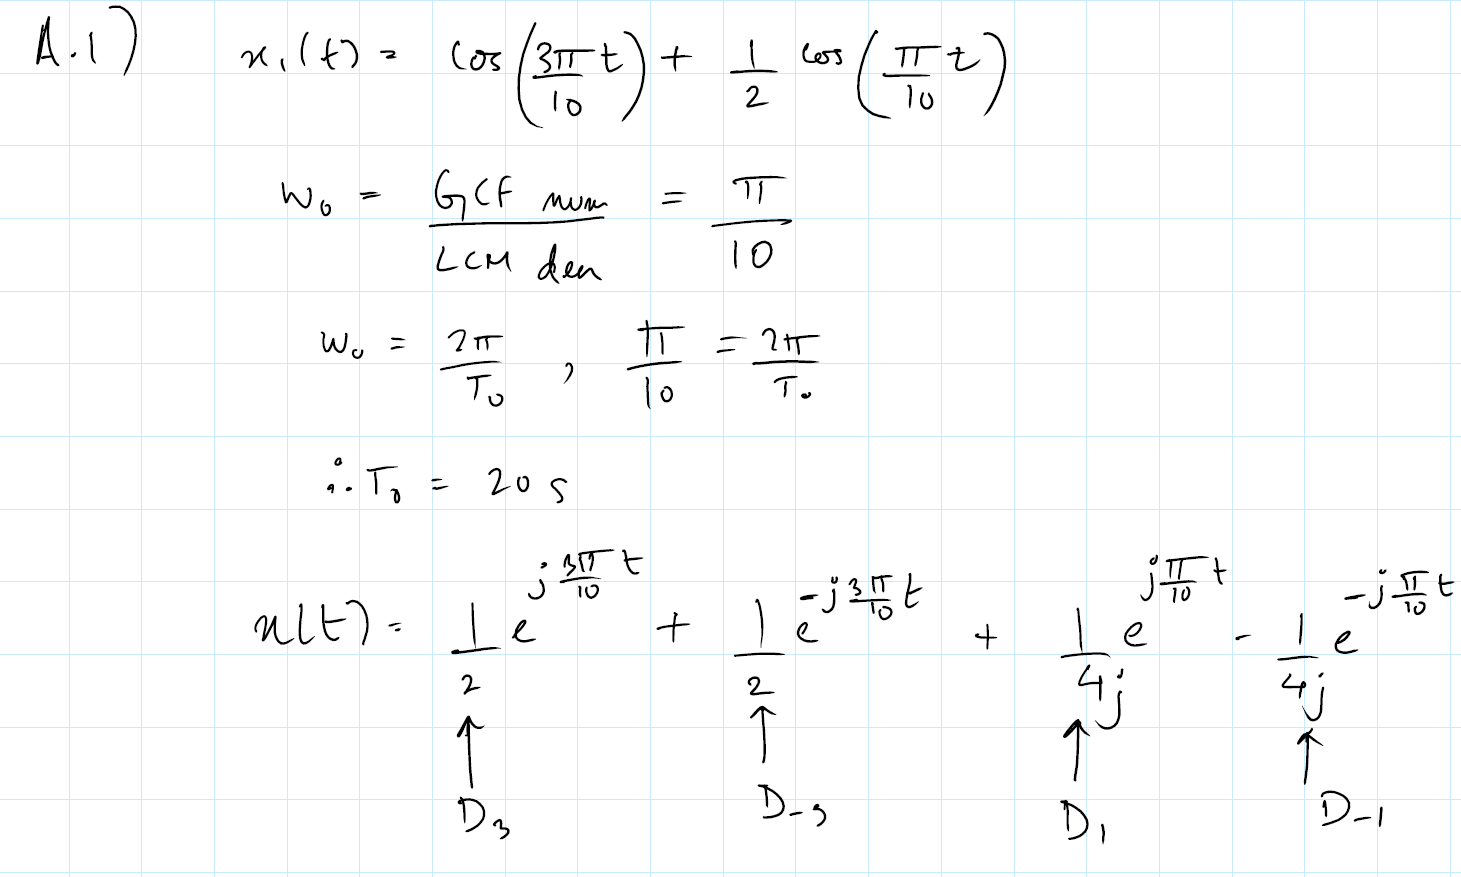 A.1) x₁(t) = cos(3π/10 t) + 1/2 cos(π/10 t)
w₀ = GCF num / LCM den = π/10
w₀ = 2π/T₀ , π/10 = 2π/T₀
∴ T₀ = 20 s
x(t) = 1/2 e^(j 3π/10 t) + 1/2 e^(-j 3π/10 t) + 1/4j e^(j π/10 t) - 1/4j e^(-j π/10 t)
↑ ↑ ↑ ↑
D₃ D₋₃ D₁ D₋₁